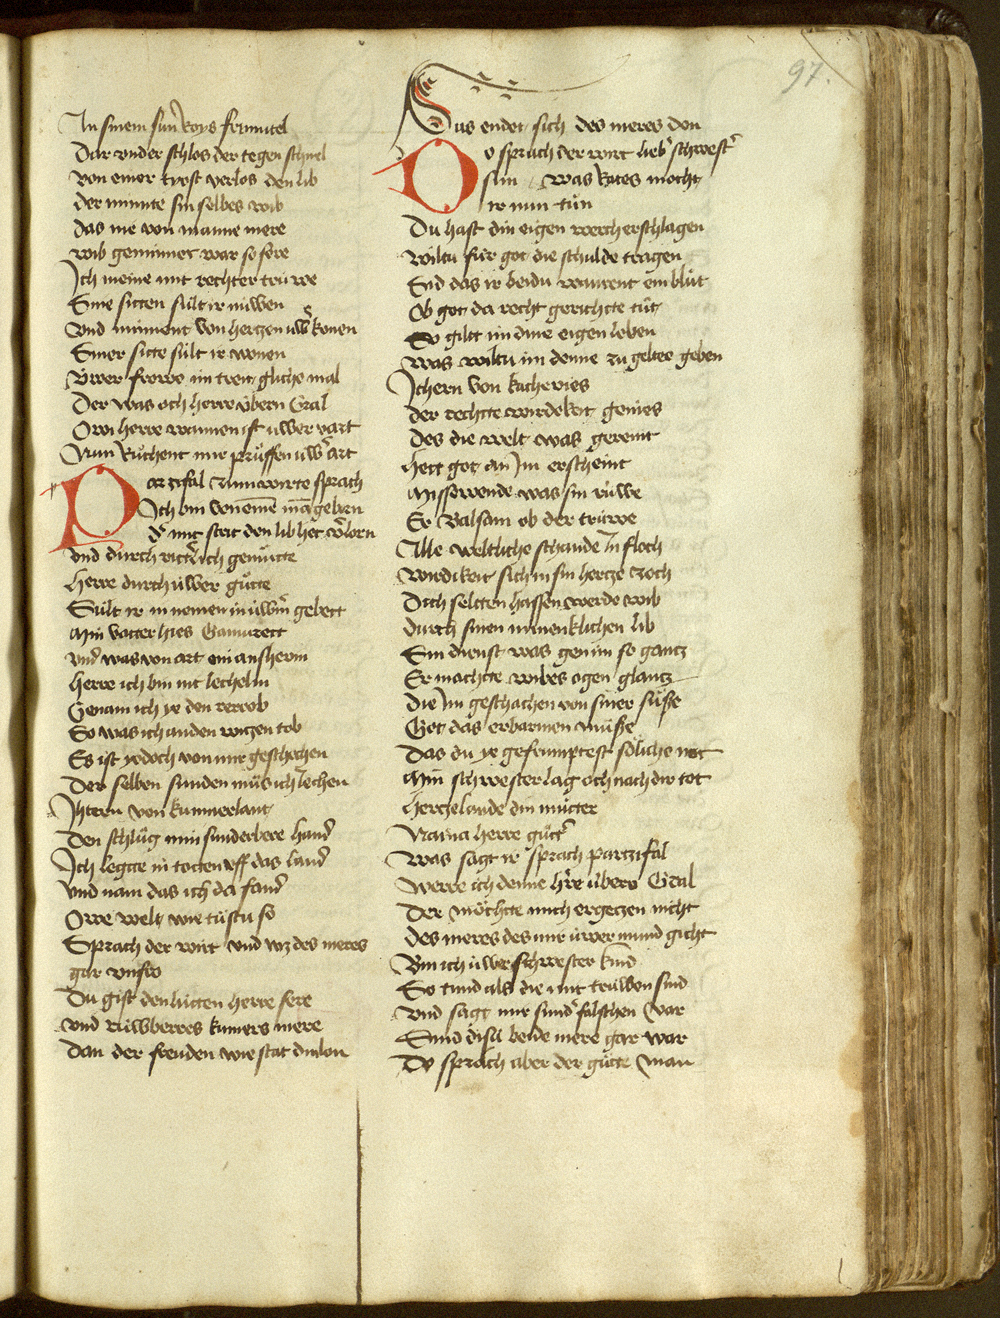 97.
An sinem sun Roys frimutel
Dar vnder schlos der tegen schnel
Von einer tyost verlos den lib
der minnte sin selbes wib
das nie von manne mere
wib geminnet war so sere
Ich meine mit rechter truwe
Sine sitten sült ir nuwen
Vnd minnent von hertzen üwͤ konen
Siner sitte sült ir wonen
Vwer frowe im treit gliche mal
Der was och herre vbern Gral
Owi herre wannen ist uwer vart
Nun Ruͦchent mir pruͤffen uwͤ art
Parzifal zum wirte sprach
Ich bin von einē mā gebern
dͤ mit strit den lib het vͤlorn
vnd durch ritterlich gemuͤtte
herre durch uwer guͤtte
Sült ir in nemen in üwerm gebett
Min vatter hies Gamurett
vnd was von art ein anshevin
herre ich bin nit lechelin
Genam ich ye den rerrob
So was ich an den witzen tob
Es ist yedoch von mir geschechen
Der selben sunden muͦs ich iechen
Ihtern von kumerlant
Den schluͦg min sunderbere hand
Ich legtte in totten vff das land
vnd nam das ich da fand
Owe welt wie tuͦstu so
Sprach der wirt vnd wz des meres
gar vnfro
Du gist den lutten herre sere
vnd ruwberres kumers mere
Dan der freuden wie stat din lon
Sus endet sich des meres don
Do sprach der wirt lieber schwester
sun was Rates mocht
ir nun tuͦn
Du hast din eigen verch erschlagen
wiltu für got die schulde tragen
Sid das ir beidu warent ein bluͦt
Ob got da recht gerichtte tuͦt
So gilt im dine eigen leben
was wiltu im denne zu geltee geben
Ichern von kacheries
der rechtte wirdekeit genies
Des die welt was gereint
Hett got an Im erscheint
Missewende was sin ruwe
Er Balsam ob der truwe
Alle weltliche schande In floch
wirdikeit sich in sin hertze zoch
Dich seltten hassen werde wib
durch sinen minenklichen lib
Sin dienst was gen im so gantz
Er machtte wibes ogen glantz
die Im geschachen von siner suͤsse
Got das erbarmen muͤsse
Das du ye gefrumptest söliche not
Min schwester lag och nach dir tot
Herczelaude din muͦtter
Naina herre guͦtͤ
Was sagt ir sprach partzifal
Werre ich denne hͤre vberͦ Gral
Der möchtte mich ergetzen nicht
des meres des mir uwer mund gicht
Bin ich üwer schwester kind
So tund als die mit truwen sind
vnd sagt mir sundͤ falschen var
Sind disu beide mere gar war
Do sprach aber der guͦtte man